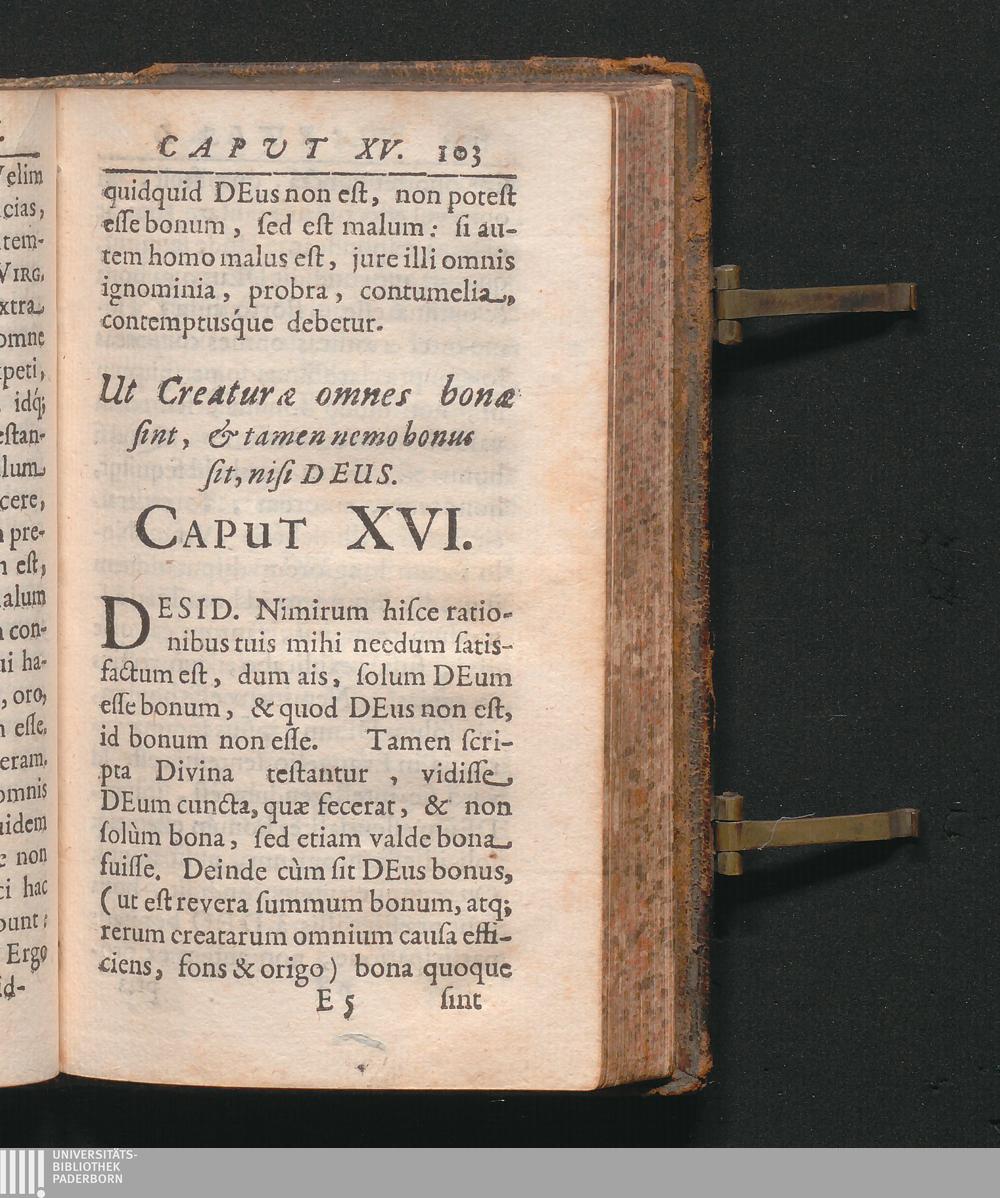 elim
cias,
tem-
VIRG.
xtra
omne
peti,
idq́;
eſtan-
lum
cere,
pre-
eſt,
alum
con-
ui ha-
, oro,
eſſe,
eram.
omnis
uidem
non
ci hac
Ergo
id-
CAPUT XV. 103
quidquid DEus non eſt, non poteſt
eſſe bonum, ſed eſt malum: ſi au-
tem homo malus eſt, jure illi omnis
ignominia, probra, contumelia,
contemptusq́ue debetur.
Ut Creaturæ omnes bonæ
ſint, & tamen nemo bonus
ſit, niſi DEUS.
CAPUT XVI.
DESID. Nimirum hiſce ratio-
nibus tuis mihi necdum ſatis-
factum eſt, dum ais, ſolum DEum
eſſe bonum, & quod DEus non eſt,
id bonum non eſſe. Tamen ſcri-
pta Divina teſtantur, vidiſſe
DEum cuncta, quæ fecerat, & non
ſolùm bona, ſed etiam valde bona
fuiſſe. Deinde cùm ſit DEus bonus,
(ut eſt revera ſummum bonum, atq;
rerum creatarum omnium cauſa effi-
ciens, fons & origo) bona quoque
E 5 ſint
UNIVERSITÄTS-
BIBLIOTHEK
PADERBORN